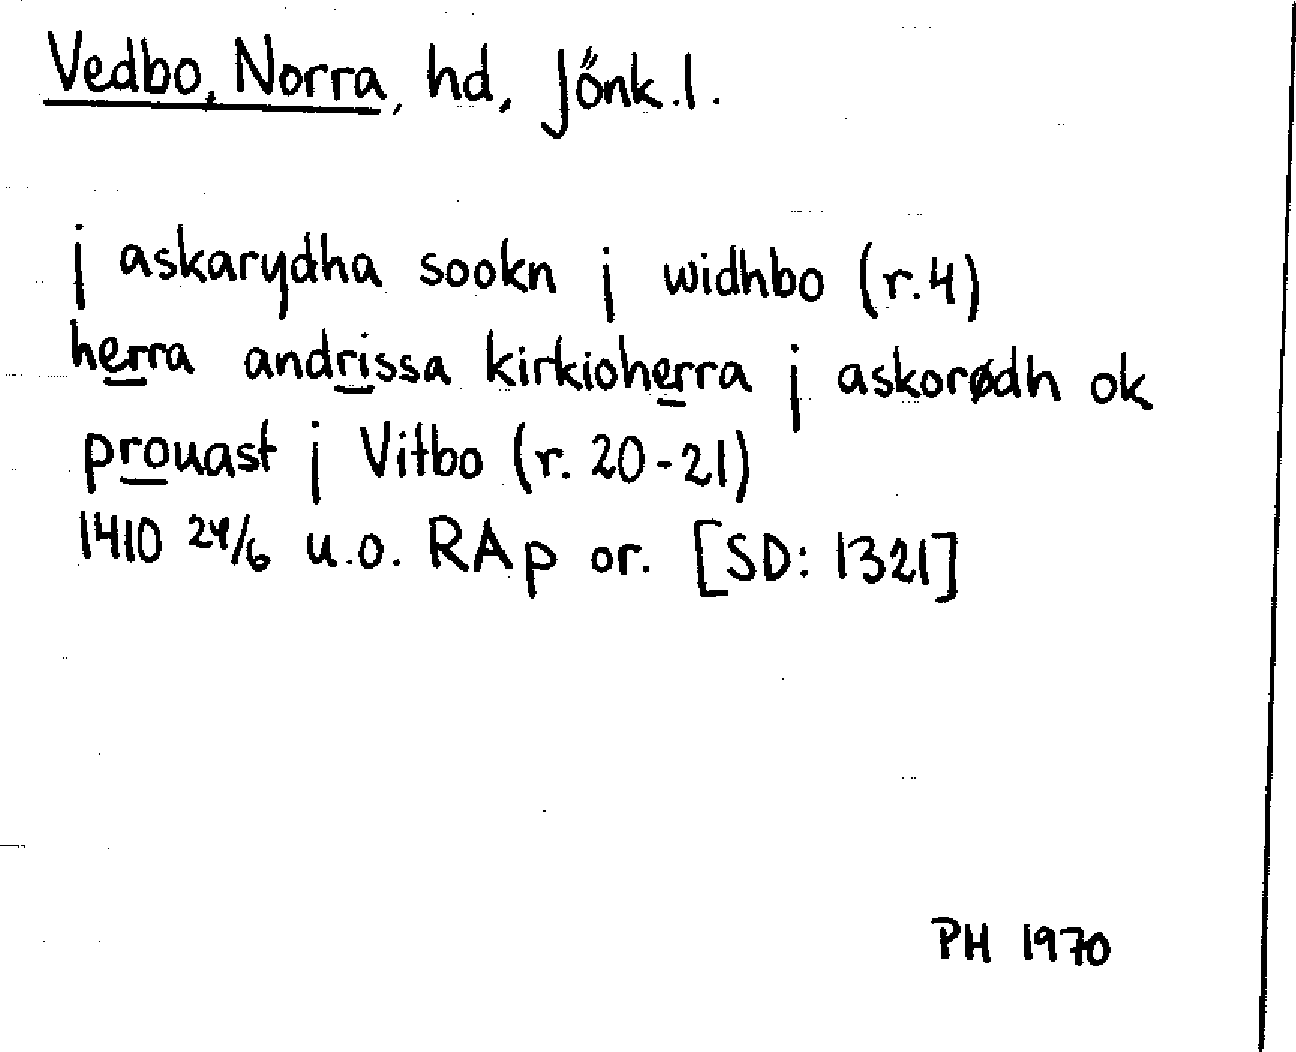 Vedbo, Norra, hd, Jönk.l.
j askarydha sookn j widhbo (r.4)
herra andrissa kirkioherra j askorødh ok
prouast j Vitbo (r. 20-21)
1410 24/6 u.o. RAp or. [SD: 1321]
PH 1970